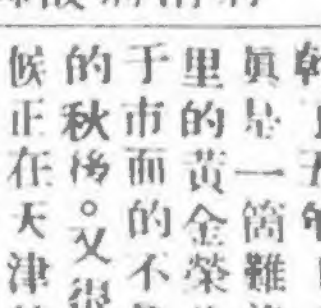 眞是一箇難
里的黃金榮
于市面的不
的秋後。又
候正在天津